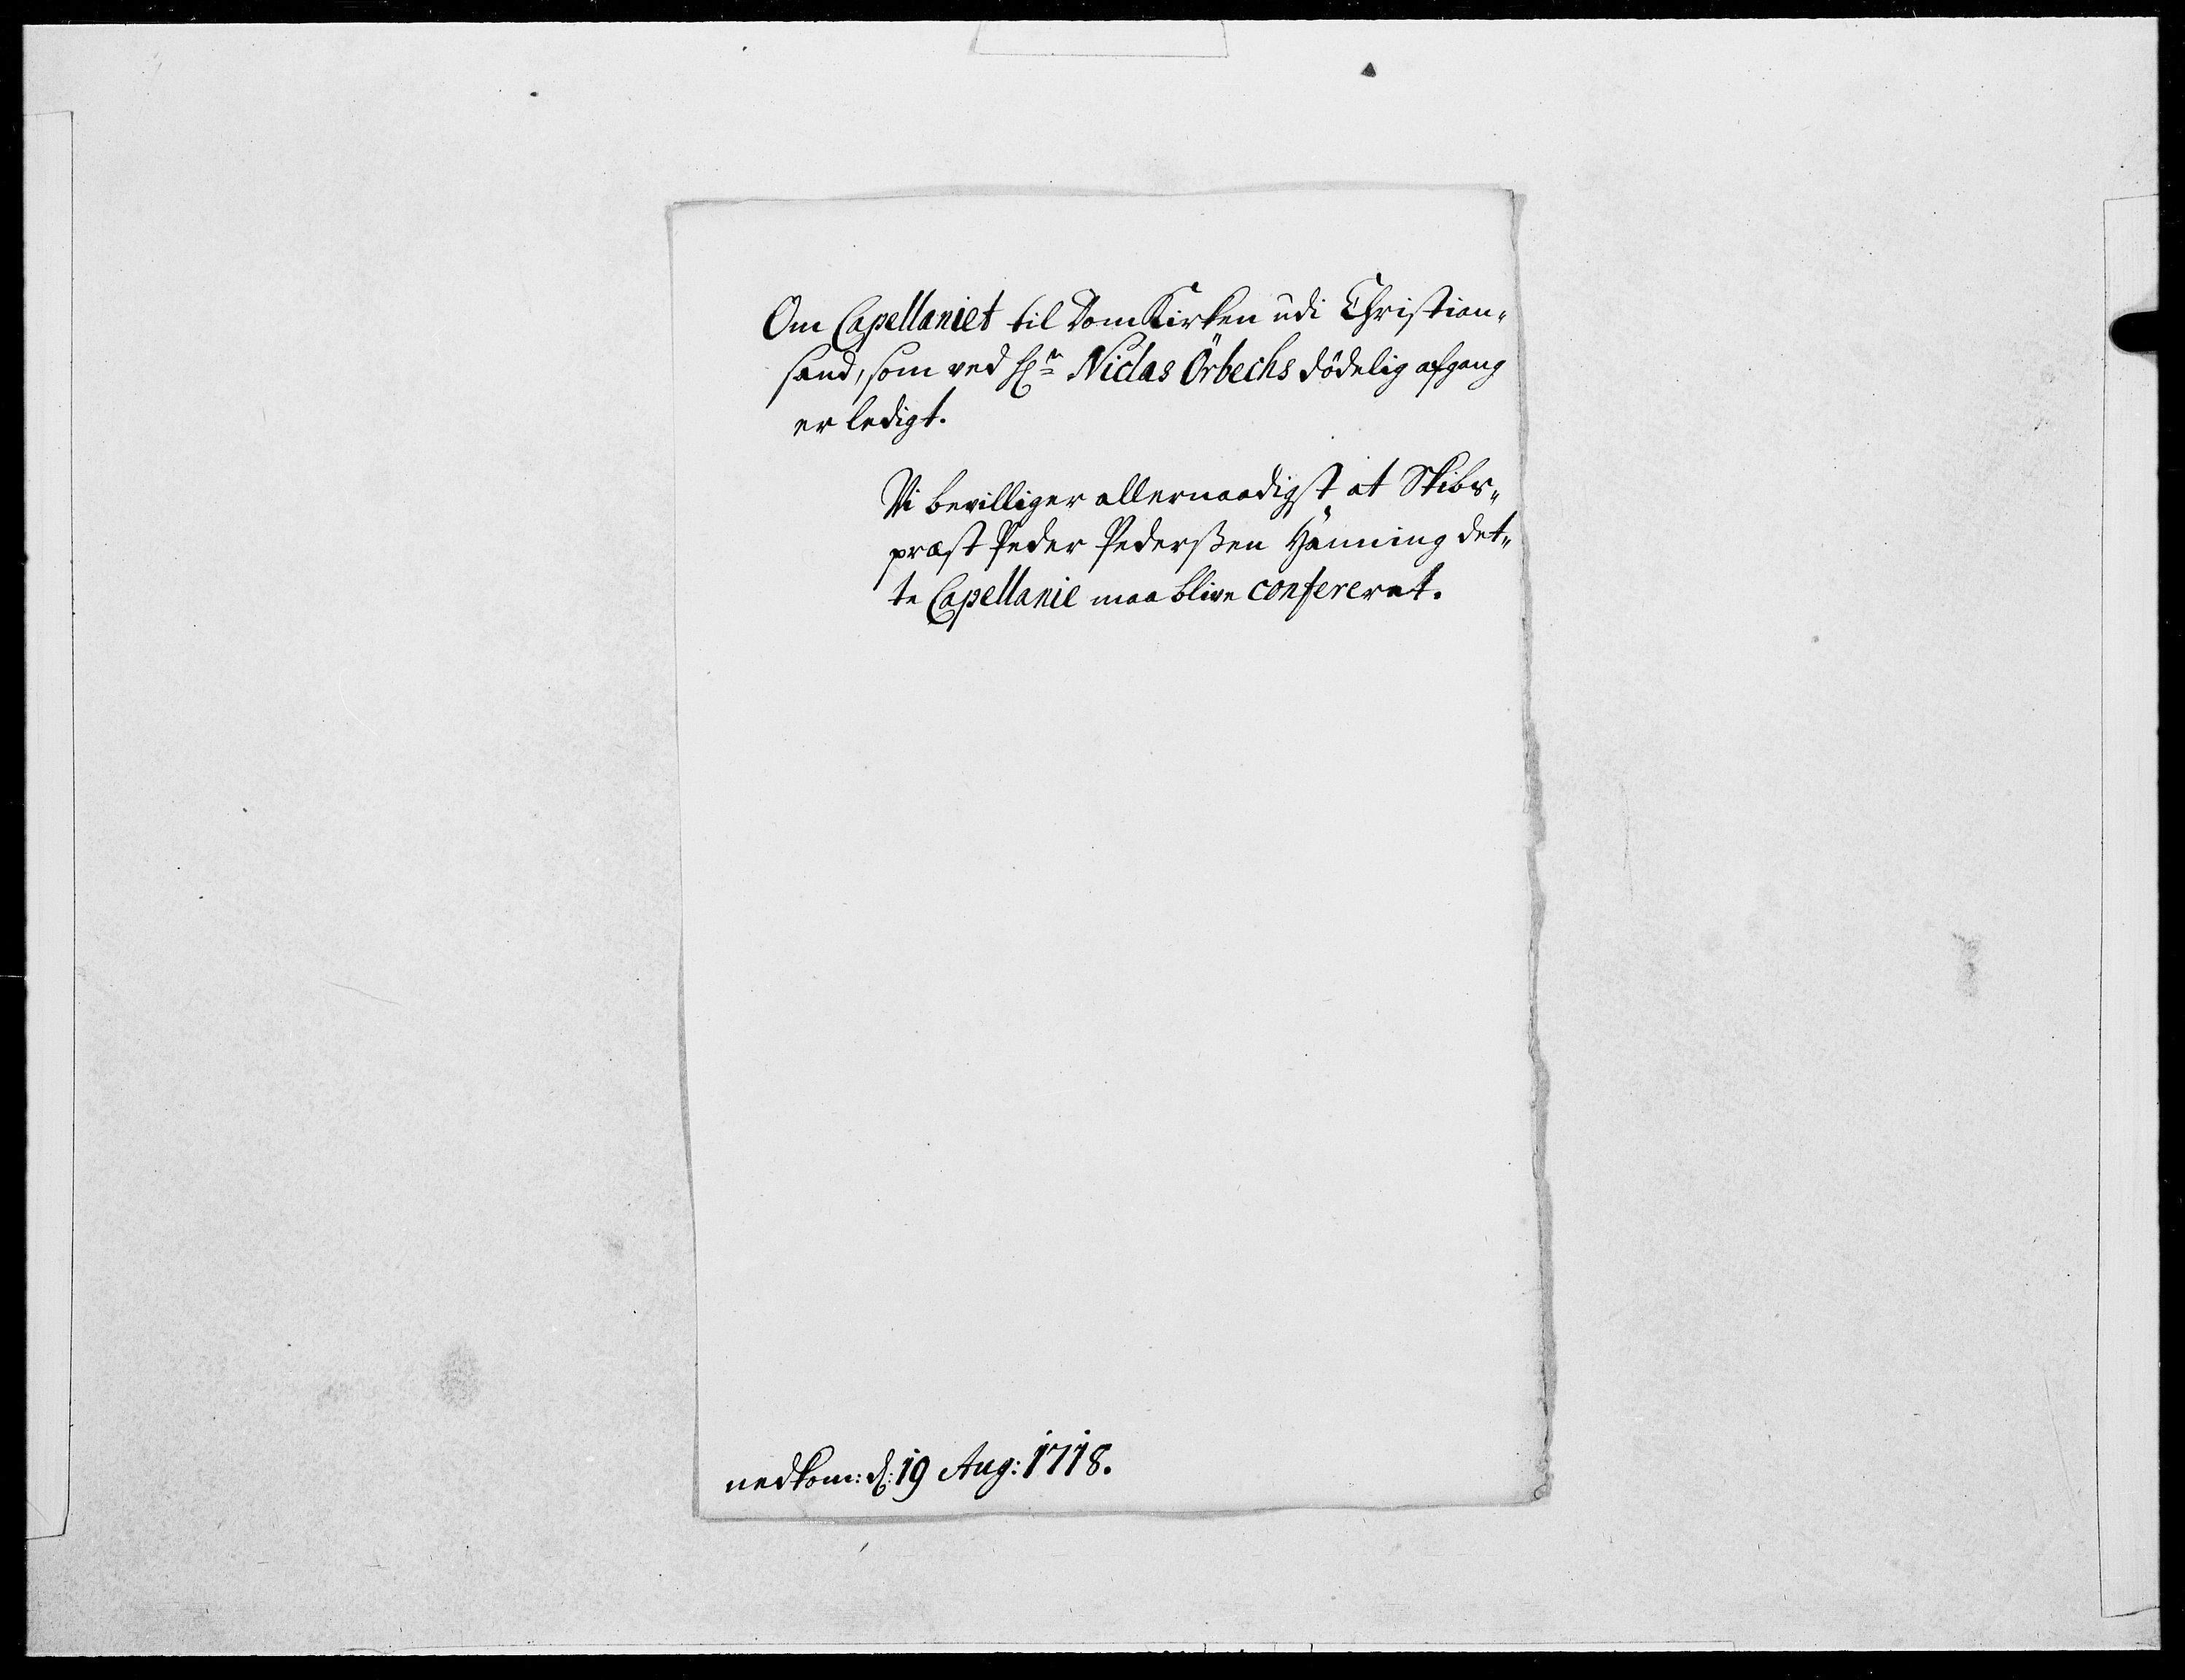 Om Capellaniet til DomKirken udi Christian„
sand, som ved Hr Niclas Örbechs dödelig afgang
er ledigt.
Vi bevilliger allernaadigst at Skibs„
præst Peder Pederßen Hänning det„
te Capellanie maa blive confereret.
nedkom: d: 19 Aug: 1718.